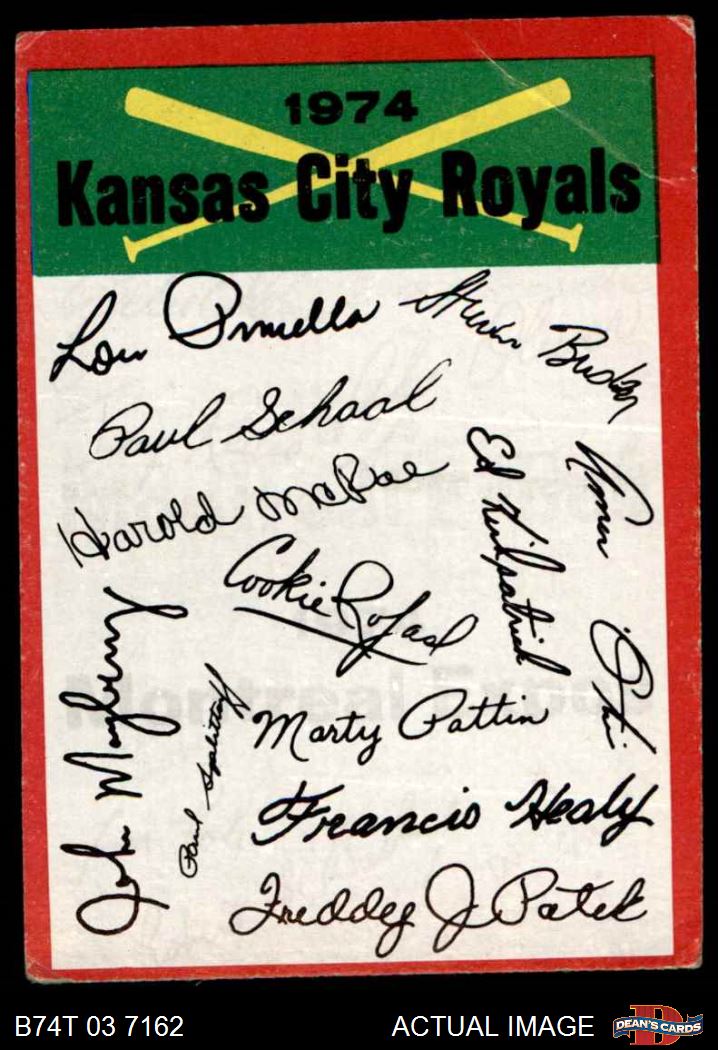 1974
Kansas City Royals
Lou Piniella
Steven Busby
Paul Schaal
Amos Otis
Harold McRae
Ed Kirkpatrick
Cookie Rojas
John Mayberry
Paul Splittorff
Marty Pattin
Francis Healy
Freddy J Patek
B74T 03 7162 ACTUAL IMAGE D DEAN'S CARDS